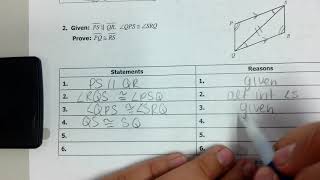 2. Given: PS || QR, ∠QPS ≅ ∠SRQ
Prove: PQ ≅ RS
P
S
Q
R
Statements Reasons
1. PS // QR 1. given
2. ∠RQS ≅ ∠PSQ 2. alt int ∠s
3. ∠QPS ≅ ∠SRQ 3. given
4. QS ≅ SQ 4.
5. 5.
6. 6.